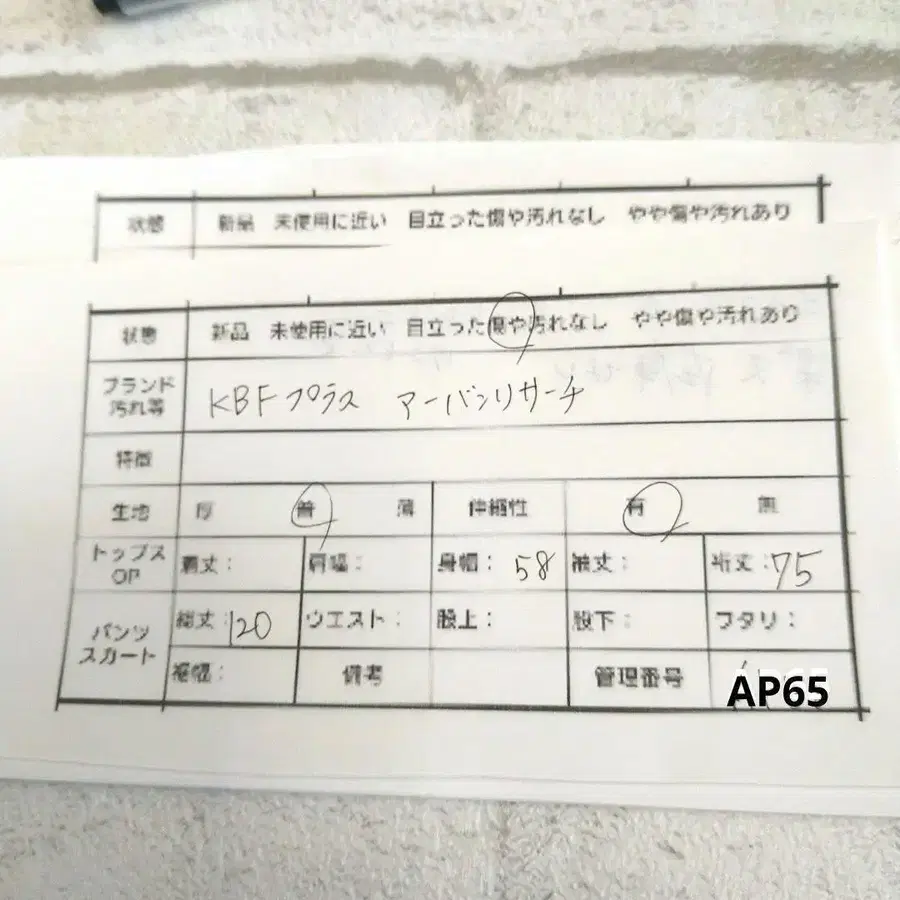 状態 新品 未使用に近い 目立った傷や汚れなし やや傷や汚れあり
状態 新品 未使用に近い 目立った傷や汚れなし やや傷や汚れあり
ブランド
汚れ等 KBFプラス アーバンリサーチ
特徴
生地 厚 普 薄 伸縮性 有 無
トップス
OP 着丈: 肩幅: 身幅: 58 袖丈: 裄丈: 75
パンツ
スカート 総丈: 120 ウエスト: 股上: 股下: ワタリ:
裾幅: 備考 管理番号 AP65